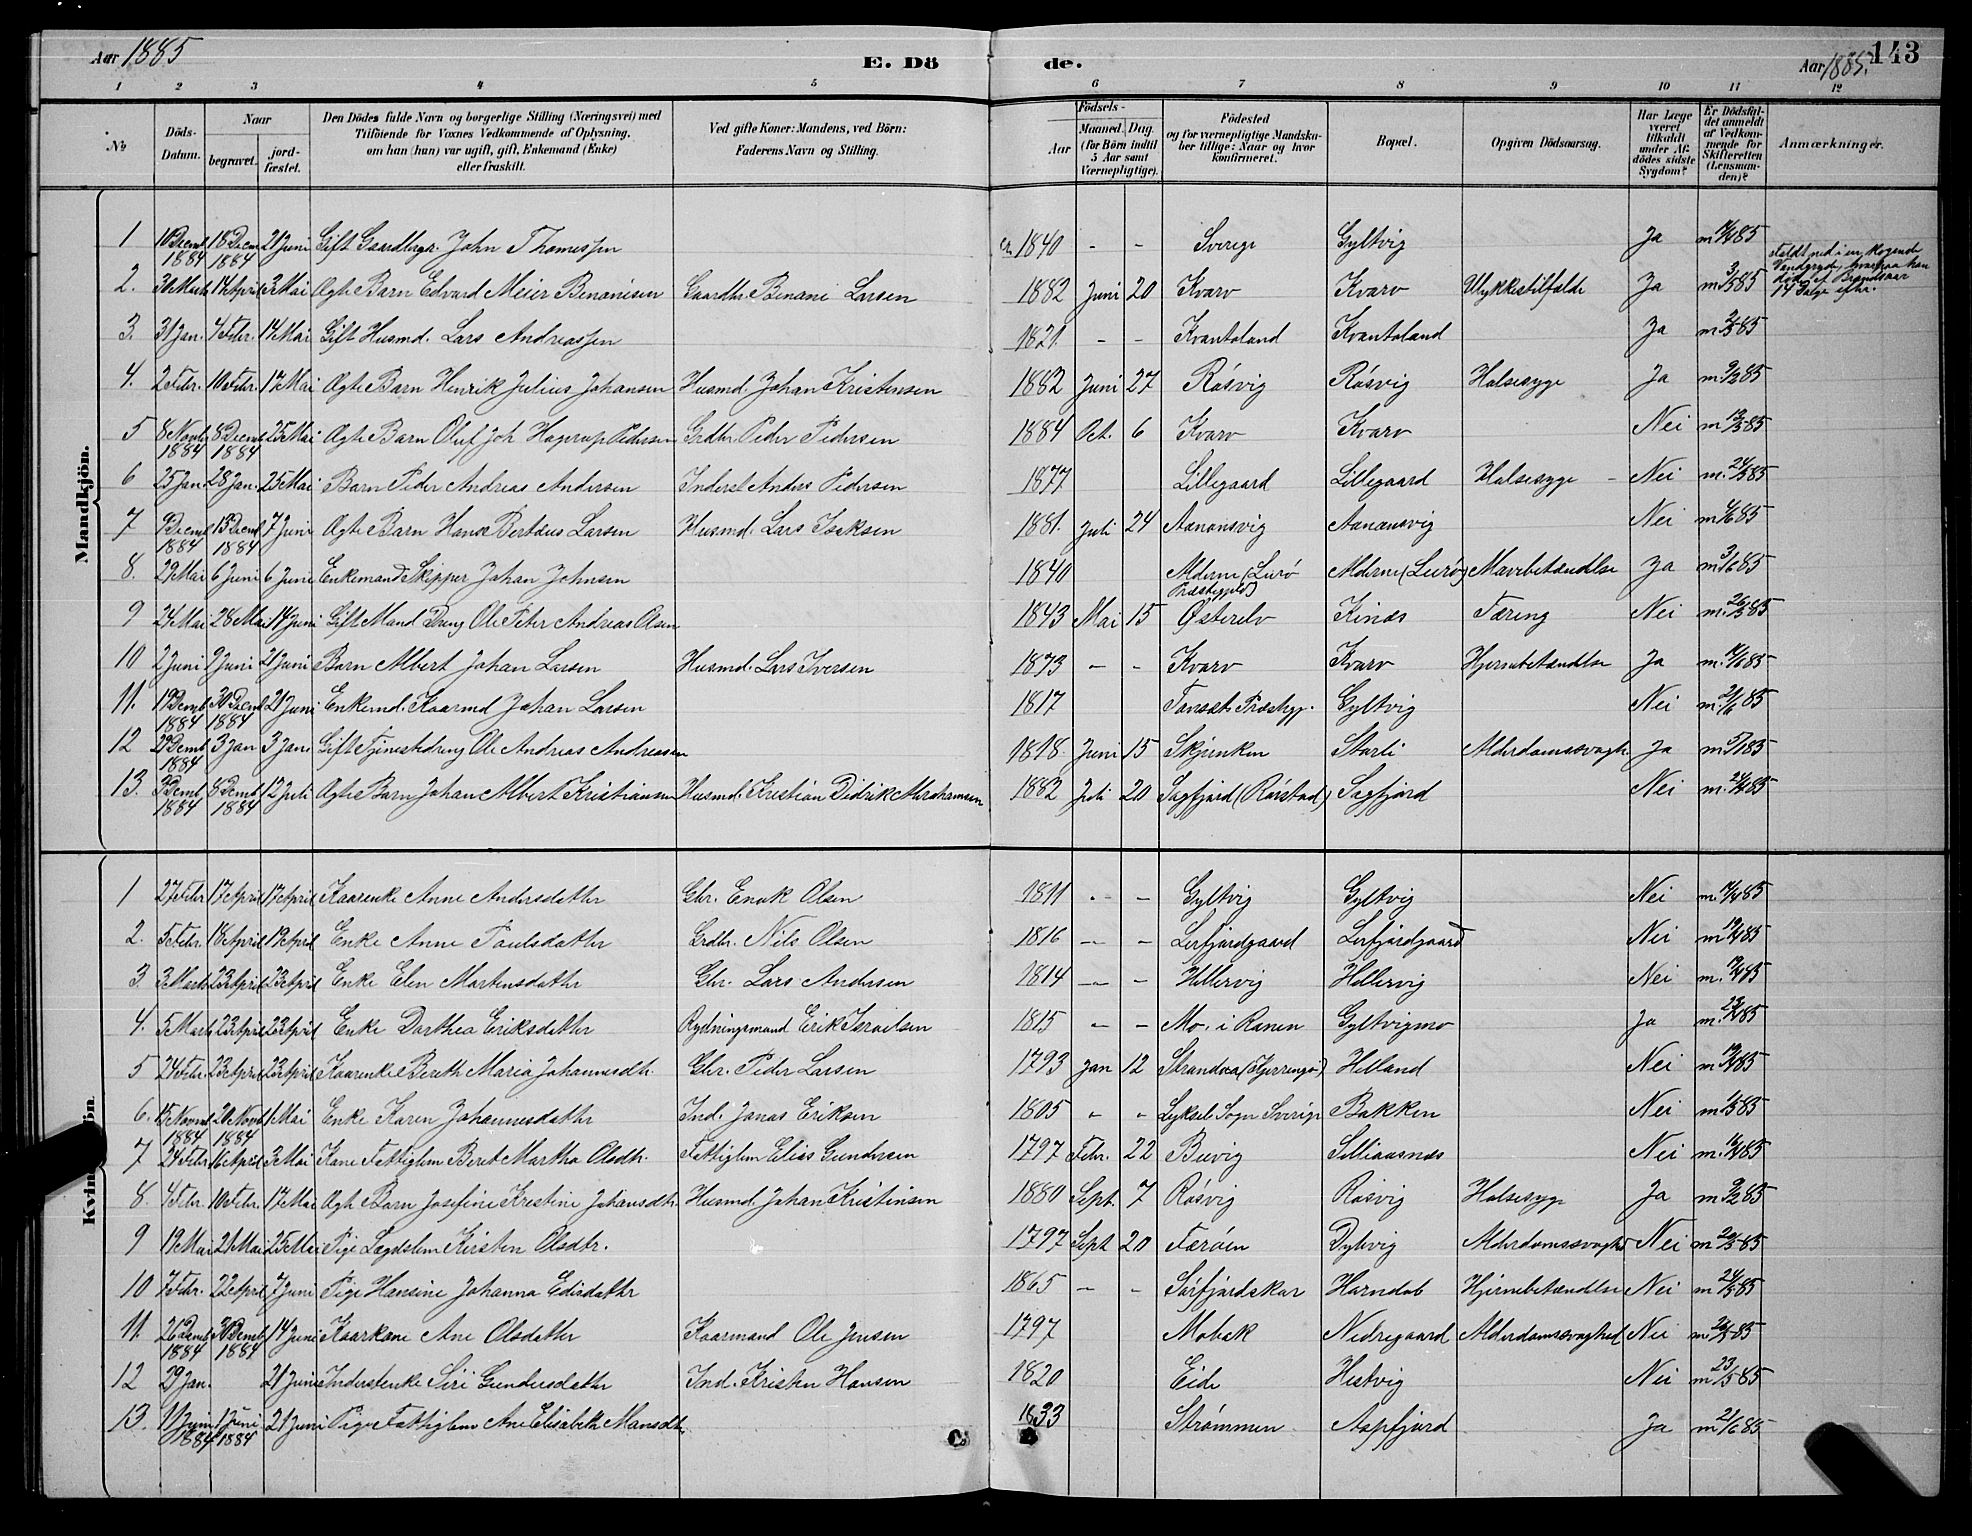 Aar 1885 E. Dö de. Aar 1885. 143
1 2 3 4 5 6 7 8 9 10 11 12
No Döds-Datum. Naar begravet. jordfæstet. Den Dödes fulde Navn og borgerlige Stilling (Næringsvei) med Tilföiende for Voxnes Vedkommende af Oplysning, om han (hun) var ugift, gift, Enkemand (Enke) eller fraskilt. Ved gifte Koner: Mandens, ved Börn: Faderens Navn og Stilling. Födsels- Aar Maaned. Dag. (for Börn indtil 5 Aar samt Værnepligtige). Födested og for værnepligtige Mandskaber tillige: Naar og hvor konfirmeret. Bopæl. Opgiven Dödsaarsag. Har Læge været tilkaldt under Afdödes sidste Sygdom? Er Dödsfaldet anmeldt af Vedkommende for Skifteretten (Lensmanden)? Anmærkninger.
Mandkjön.
1 10 Decmb 1884 18 Decm 1884 21 Juni Gift Gaardbrgr. John Thomessen 1840 - - Sverige Gyltvig Ja
2. 30 Marts 14 April 3 Mai Ægte Barn Edvard Meier Benonisen Gaardbr. Benoni Larsen 1882 Juni 20 Kvarv Kvarv Ulykkestilfælde Ja m 3/5 85 Faldt ned i en kogende Vandgryde, hvorpaa han døde af Brandsaar 14 Dage efter.
3. 31 Jan. 4 Febr. 14 Mai Gift Husmd. Lars Andreassen 1821 - - Kvantoland Kvantoland Ja
4. 2 Febr. 10 Febr. 17 Mai Ægte Barn Henrik Julius Johansen Husmd. Johan Kristensen 1882 Juni 27 Røsvig Røsvig Halsesyge Ja m. 9/2 85
5 8 Novbr 1884 8 Decmb 1884 25 Mai Ægte Barn Oluf Joh. Hagerup Pedersen Grdbr. Peder Pedersen 1884 Oct. 6 Kvarv Kvarv Nei
6 25 Jan. 28 Jan. 25 Mai Barn Peder Andreas Andersen Inderst Anders Pedersen 1877 Lillegaard Lillegaard Halsesyge - Nei m. 24/5 85
7 Decmb 1884 15 Decmb 1884 7 Juni Ægte Barn Hans Bertæus Larsen Husmd. Lars Isaksen 1881. Juli 24 Aanonsvig Aanonsvig Nei m 4/6 85
8. 29 Mai 6 Juni 6 Juni Enkemand Skipper Johan Johnsen 1840 Alderne (Lurø Præstegjeld) Alderne (Lurø) Mavebetændelse Ja m 3/6 85
9 24 Mai 28 Mai 14 Juni Gift Mand Dreng Ole Peter Andreas Olsen 1843 Mai 15 Østerelv Kinæs Tæring Nei m. 26/5 85
10 2 Juni 9 Juni 21 Juni Barn Albert Johan Larsen Husmd. Lars Iversen 1873 - - Kvarv Kvarv Hjernebetændelse Ja
11. 19 Decmb. 1884 30 Decmb 1884 21 Juni Enkemd. Kaarmd Johan Larsen 1817 Gyltvig Nei
12 29 Decmb. 1884 3 Jan 3 Jan Gift Tjenestedreng Ole Andreas Andreassen 1818. Juni 15 Skjunken Storli Alderdomssvagh. Ja
13. Decmb. 1884 8 Decmb 1884 12 Juli Ægte Barn Johan Albert Kristiansen Husmd. Kristian Didrik Abrahamsen 1882 Juli 20 Sagfjord (Rørstad) Sagfjord Nei
Kvindekjön.
1 27 Febr 17 April 17 April Kaarenke Anne Andersdatter Gbr. Enok Olsen 1811 - - Gyltvig Gyltvig Nei
2. 5 Febr. 18 April 19 April Enke Anne Paulsdatter Grdbr. Nils Olsen 1816 - - Lerfjordgaard Lerfjordgaard Nei
3. 3 Marts 23 April 23 April Enke Elen Martensdatter Gbr. Lars Andersen 1814 - - Hellervig Hellervig Nei
4. 5 Marts 23 April 23 April Enke Dorthea Eriksdatter Rydningsmand Erik Israelsen 1815 - - Mo. i Ranen Gyltvigmo Ja
5 24 Febr. 23 April 23 April Kaarenke Bereth Maria Johannesdtr. Gbr. Peder Larsen 1793 Jan 12 Strandaa (Kjerringø) Helland Nei
6. 15 Novmb 1884 20 Novb 1884 1 Mai Enke Karen Johannesdatter Ind. Jonas Eriksen 1805 " " Lyksele Sogn Sverige Bakken Nei
7 24 Febr 16 April 3 Mai Kone Fattiglem Beret Martha Olsdtr. Fattiglem Elias Gundersen 1797 Febr. 22 Buvig Selliaasnæs Nei
8. 4 Febr. 10 Febr. 17 Mai Ægte Barn Josefine Kristine Johansdtr. Husmd. Johan Kristensen 1880 Sept. 7 Røsvig Røsvig Halsesyge Ja m 9/2 85
9 19 Mai 21 Mai 25 Mai Pige Lægdslem Kirsten Olsdtr. 1797 Sept 20 Færøen Dybvig Alderdomssvaghed Nei m 20/5 85
10 7 Febr. 22 April 7 Juni Pige Hansine Johanna Edisdatter 1865 - - Sørfjordskar Horndal Hjernebetændelse Nei m 24/5 85
11. 26 Decmb 1884 30 Decmb 1884 14 Juni Kaarkone Ane Olsdatter Kaarmand Ole Jensen 1797 Mobæk Nedregaard Alderdomssvaghed Nei
12 29 Jan. 21 Juni Inderstenke Siri Gundersdatter Ind. Kristen Hansen 1820 Eide Hestvig Nei m 23/5 85
13. 1 Juni 1884 1 Juni 1884 21 Juni Pige Fattiglem Ane Elisabeth Mansdtr. 1833 Strømmen Aapfjord Ja m 2/6 85